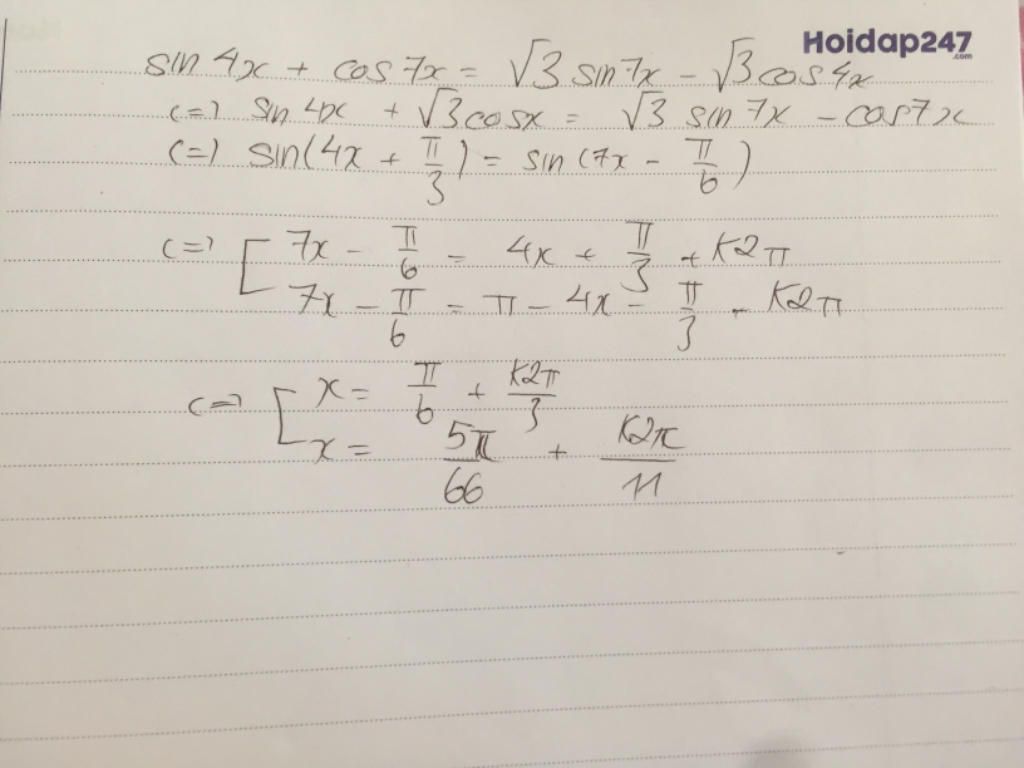 Hoidap247
.com
sin 4x + cos 7x = √3 sin 7x - √3 cos 4x
(=) sin 4x + √3 cosx = √3 sin 7x - cos 7x
(=) sin(4x + π/3) = sin (7x - π/6)
(=) [ 7x - π/6 = 4x + π/3 + K2π
7x - π/6 = π - 4x - π/3 - K2π
(=) [ x = π/6 + K2π/3
x = 5π/66 + K2π/11